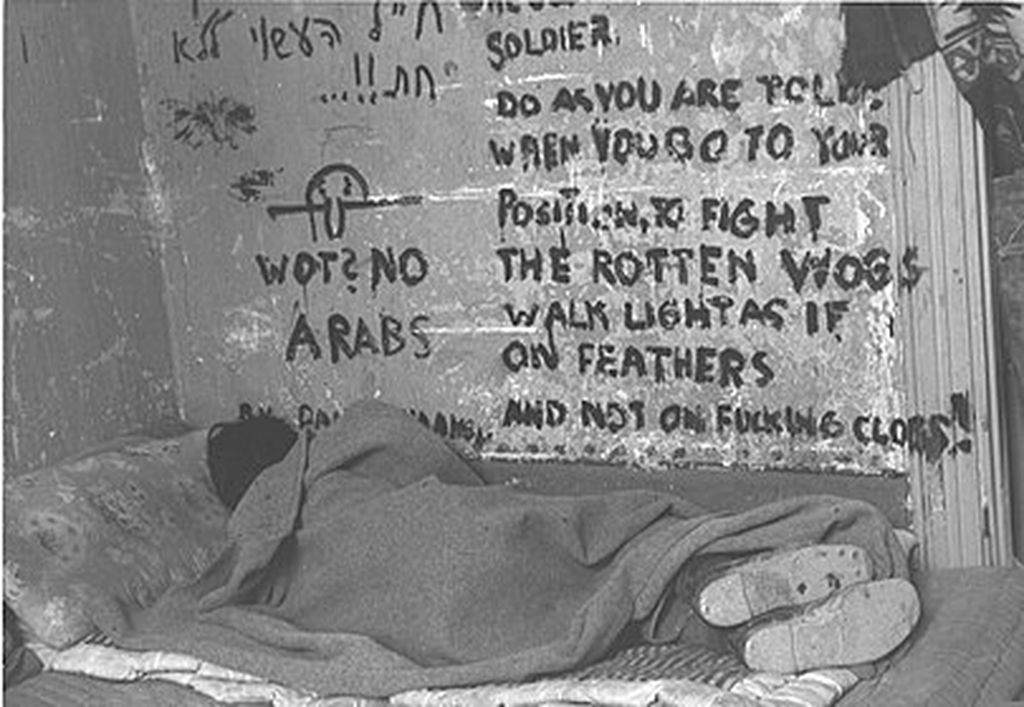 העשוי ללא
חת!!...
WOT? NO
ARABS
SOLDIER.
DO AS YOU ARE TOLD
WHEN YOU GO TO YOUR
POSITION, TO FIGHT
THE ROTTEN WOGS
WALK LIGHT AS IF
ON FEATHERS
AND NOT ON FUCKING CLOBS!!